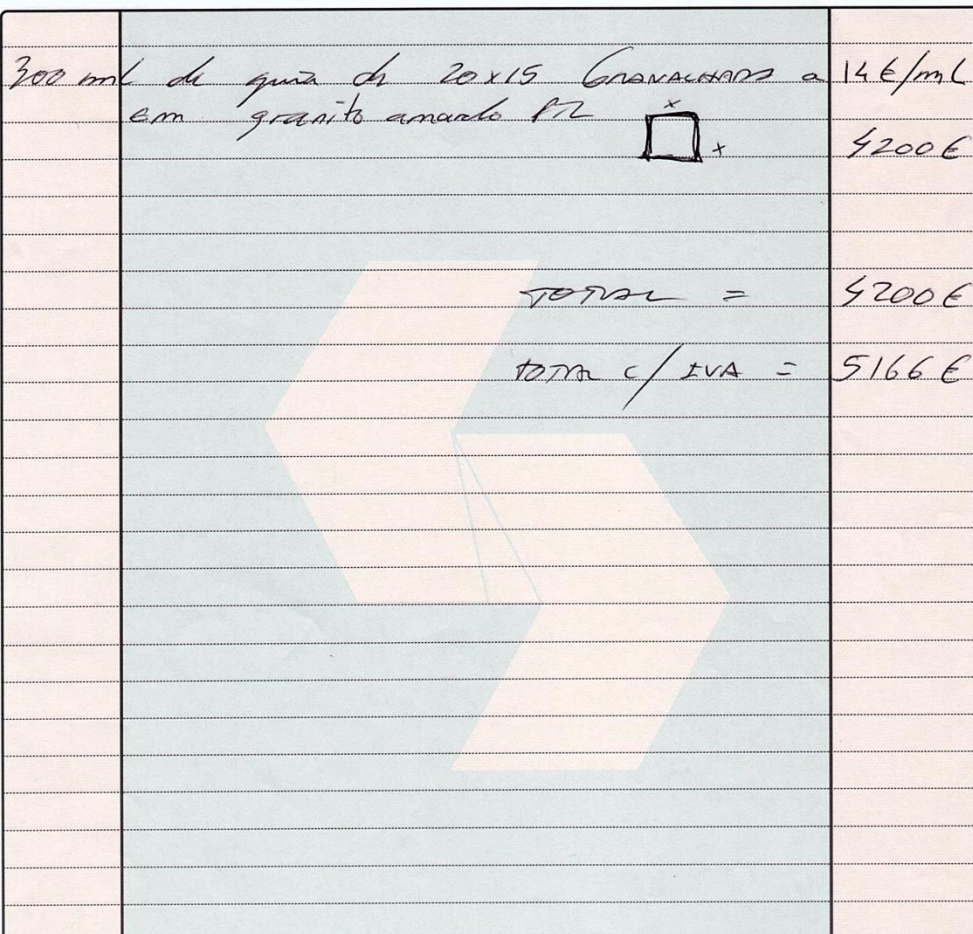 300 ml de guia de 20x15 GRANALHADA a 14€/ml
em granito amarelo
x
x
4200€
TOTAL = 4200€
TOTAL C/ IVA = 5166€